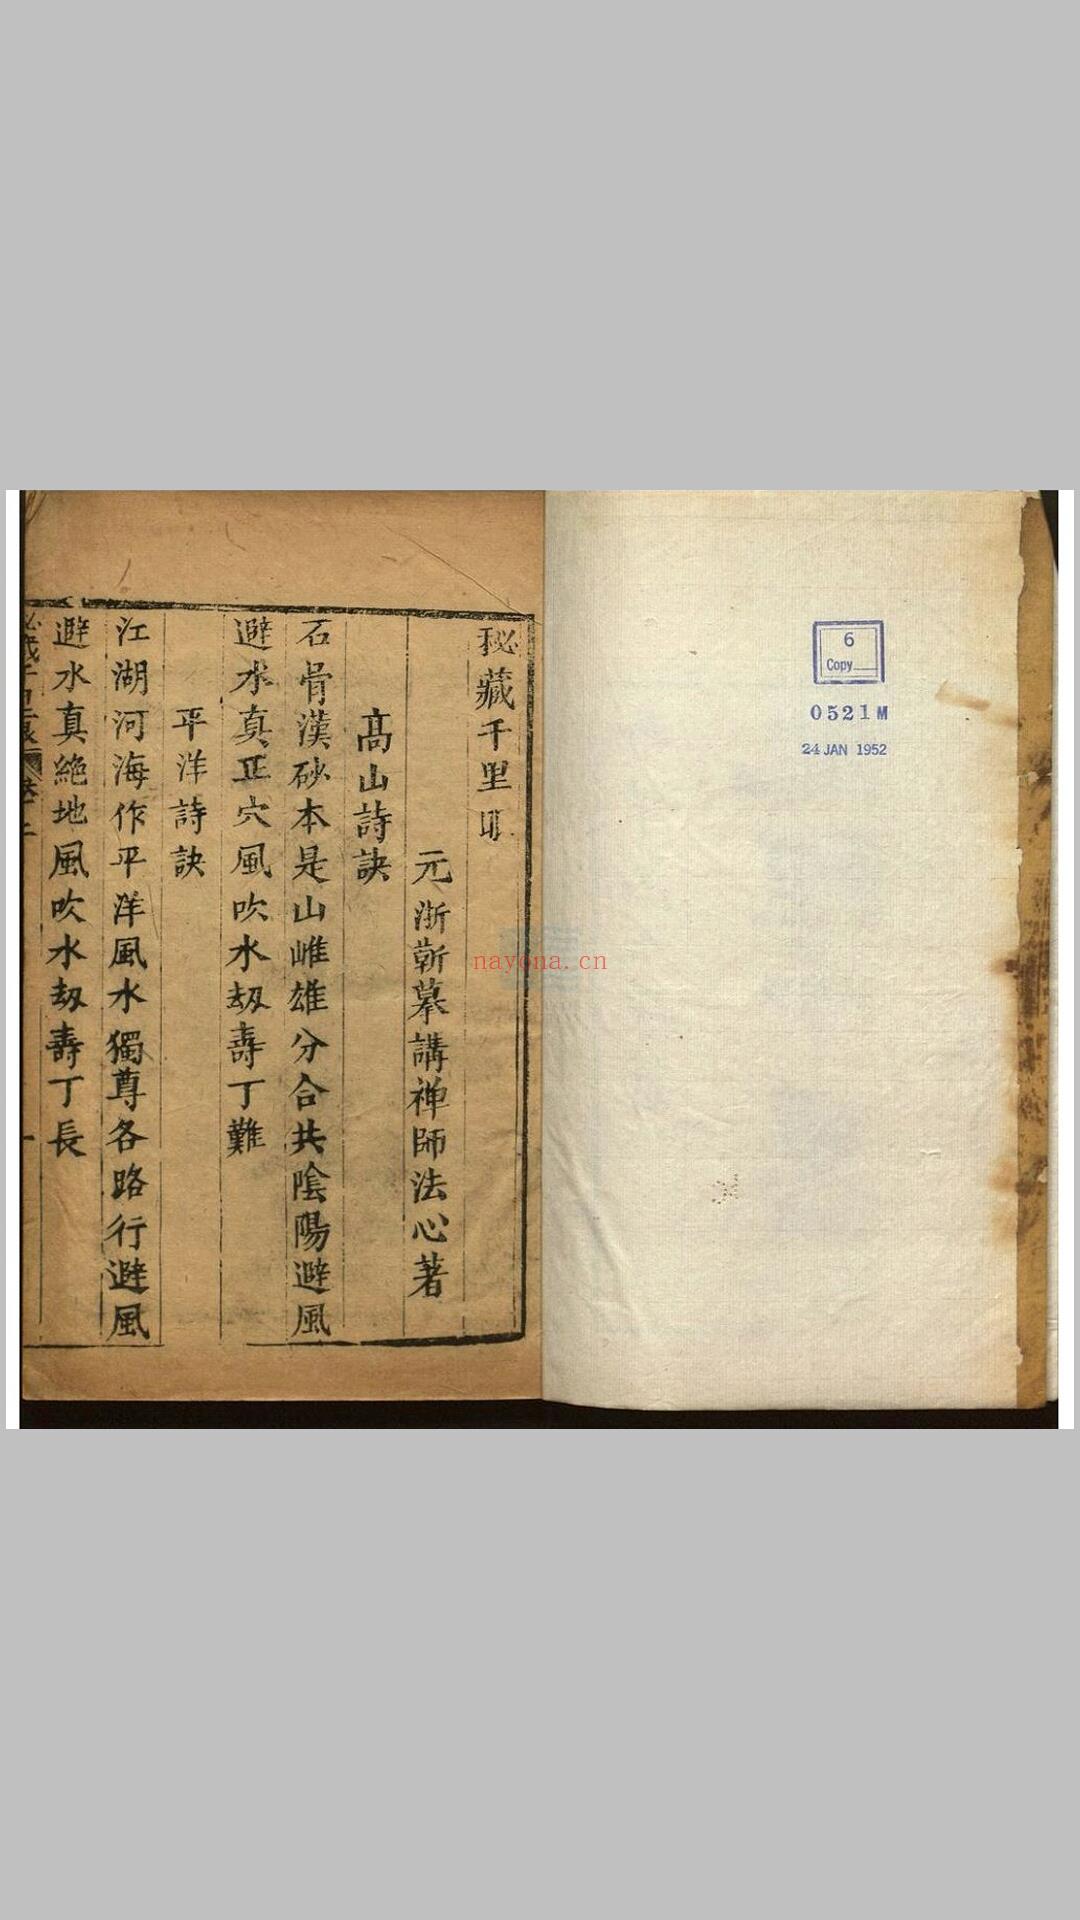 秘藏千里
元浙蘄摹講禅師法心著
髙山詩訣
石骨漢砂本是山雌雄分合共陰陽避風
避水真正穴風吹水刼壽丁難
平洋詩訣
江湖河海作平洋風水獨尊各路行避風
避水真絶地風吹水刼壽丁長
nayona.cn
6
Copy
0521M
24 JAN 1952